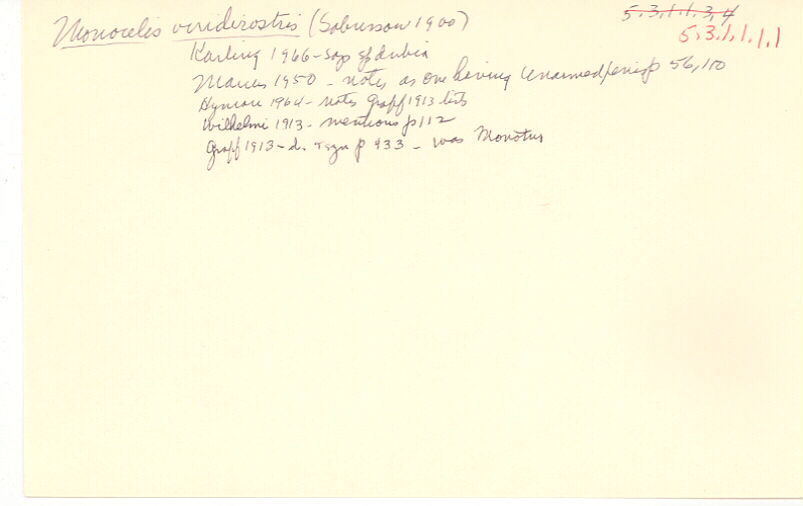 5.3.1.1.3.4
Monocelis viridirostris (Sabussow 1900)
5.3.1.1.1.1
Karling 1966 - says sp dubia
Marcus 1950 - notes as one having unarmed penis p 56, 110
Hyman 1964 - notes Graff 1913 lists
Wilhelmi 1913 - mentions p 112
Graff 1913 - d. p 433 - was Monotus